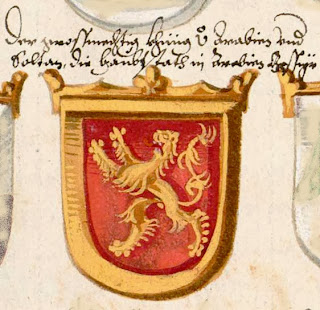 Der grossmechtig khünig v̊ Arabien und
Soltan, die haubt stath in Arabien